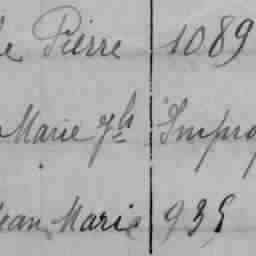 le Pierre 1089
Marie Jh Improp
Jean Marie 935